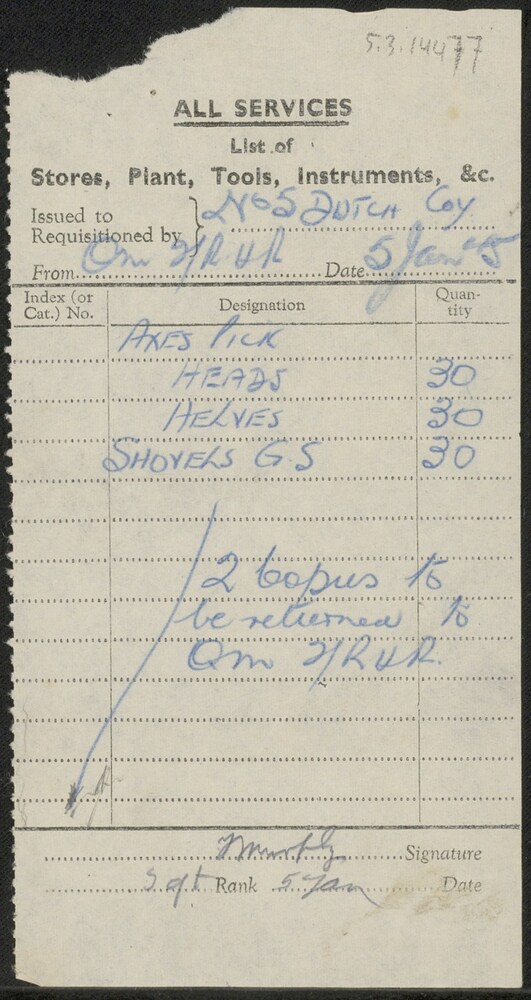 5.3.14477
ALL SERVICES
List of
Stores, Plant, Tools, Instruments, &c.
Issued to
Requisitioned by } No 5 DUTCH Coy
From Qm 2/R.U.R Date 5 Jan 45
Index (or Cat.) No. Designation Quantity
AXES PICK
HEADS 30
HELVES 30
SHOVELS G.S 30
2 Copies to
be returned to
Qm 2/R.U.R.
Signature
Sgt Rank 5 Jan Date